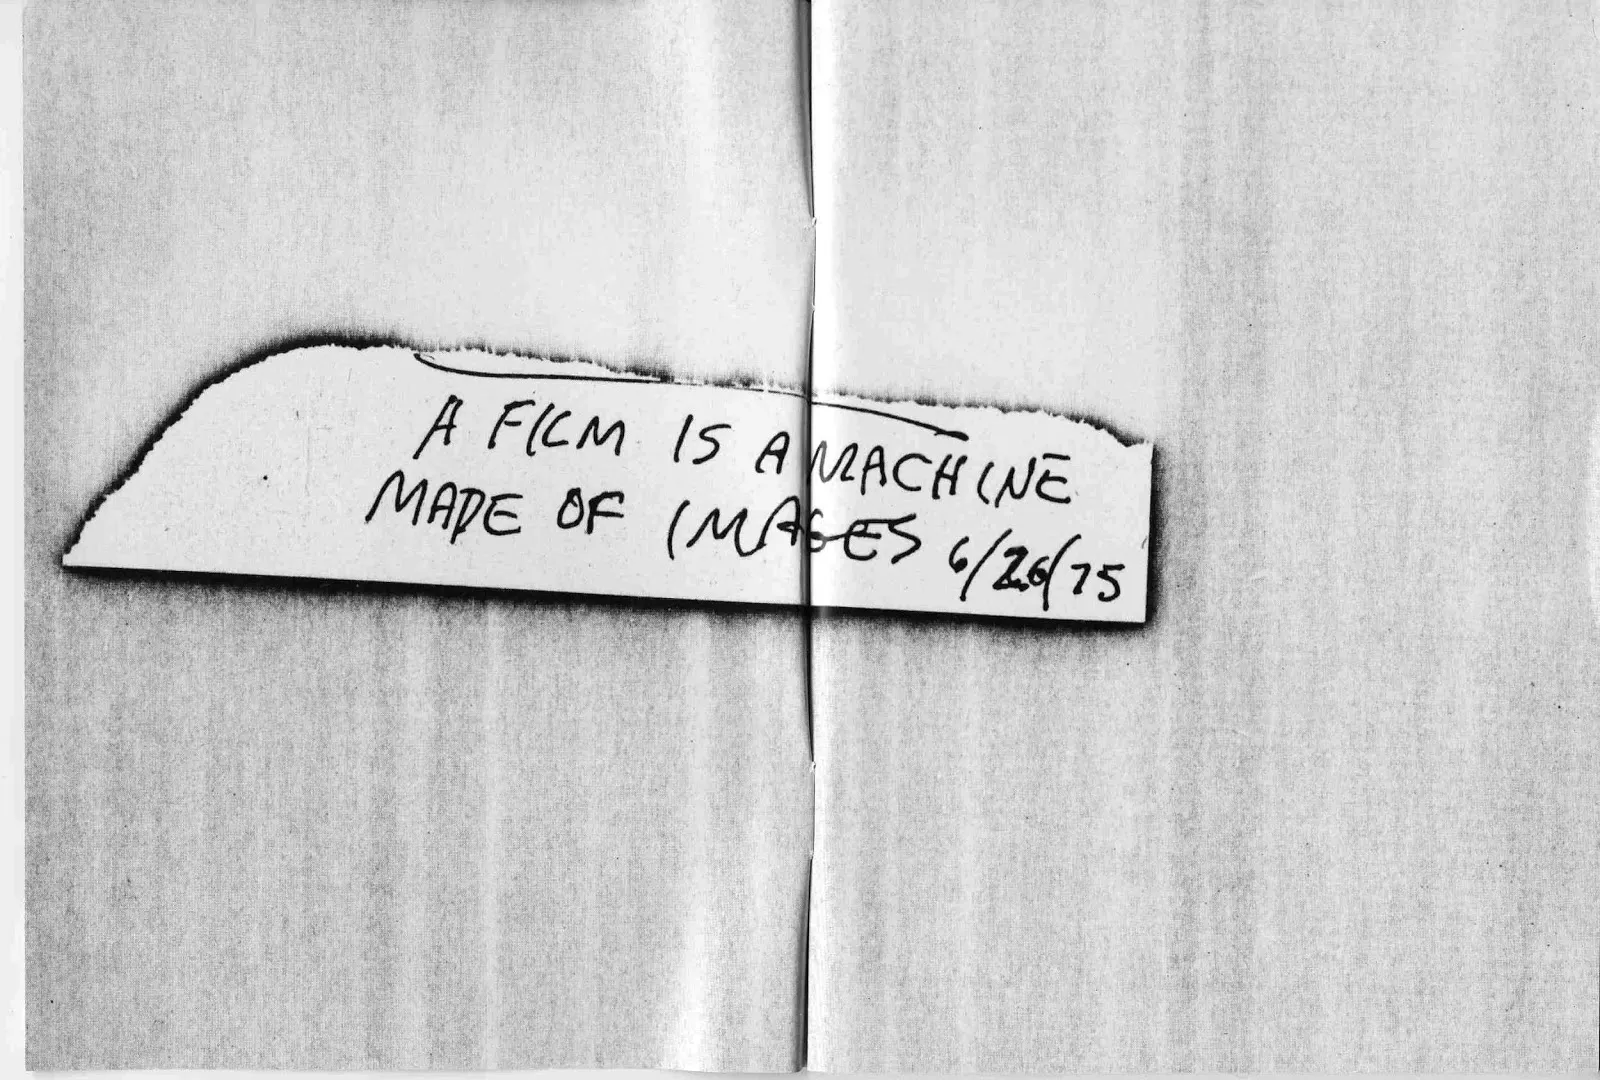 A FILM IS A MACHINE
MADE OF IMAGES 6/26/75